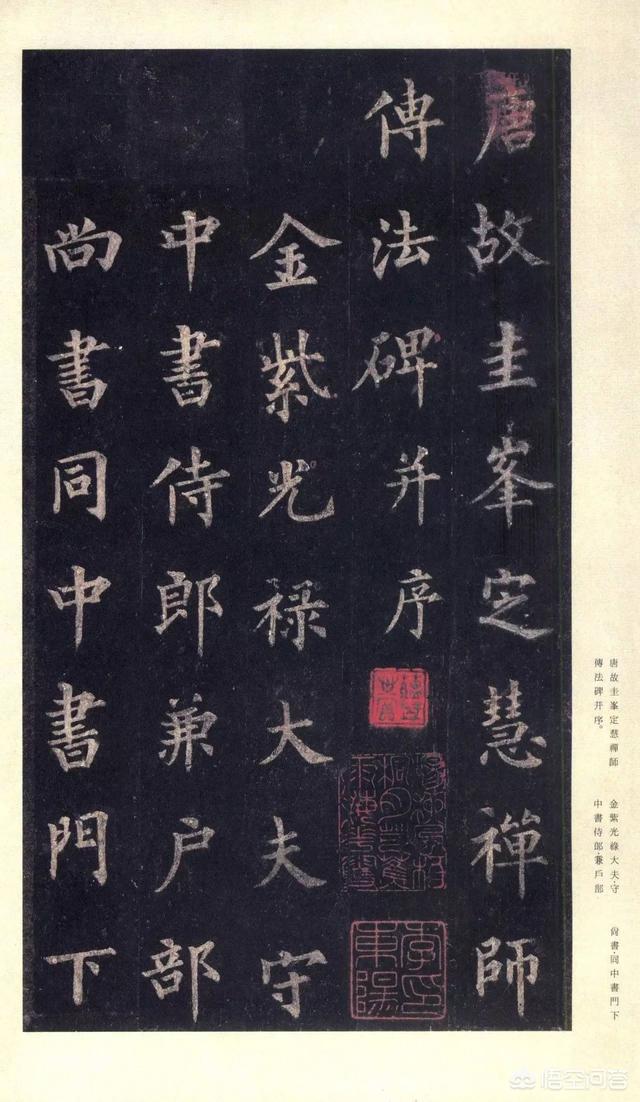 唐故圭峯定慧禪師
傳法碑并序
金紫光禄大夫守
中書侍郎兼户部
尚書同中書門下
唐故圭峯定慧禪師
傳法碑并序。
金紫光祿大夫·守
中書侍郎·兼戶部
尙書·同中書門下
悟空问答